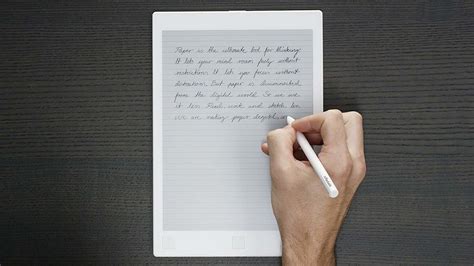 Paper is the ultimate tool for thinking
It lets your mind roam freely without
restrictions. It lets you focus without
distractions. But paper is disconnected
from the digital world. So we use
it less. Read, write and sketch.
we are making paper digital